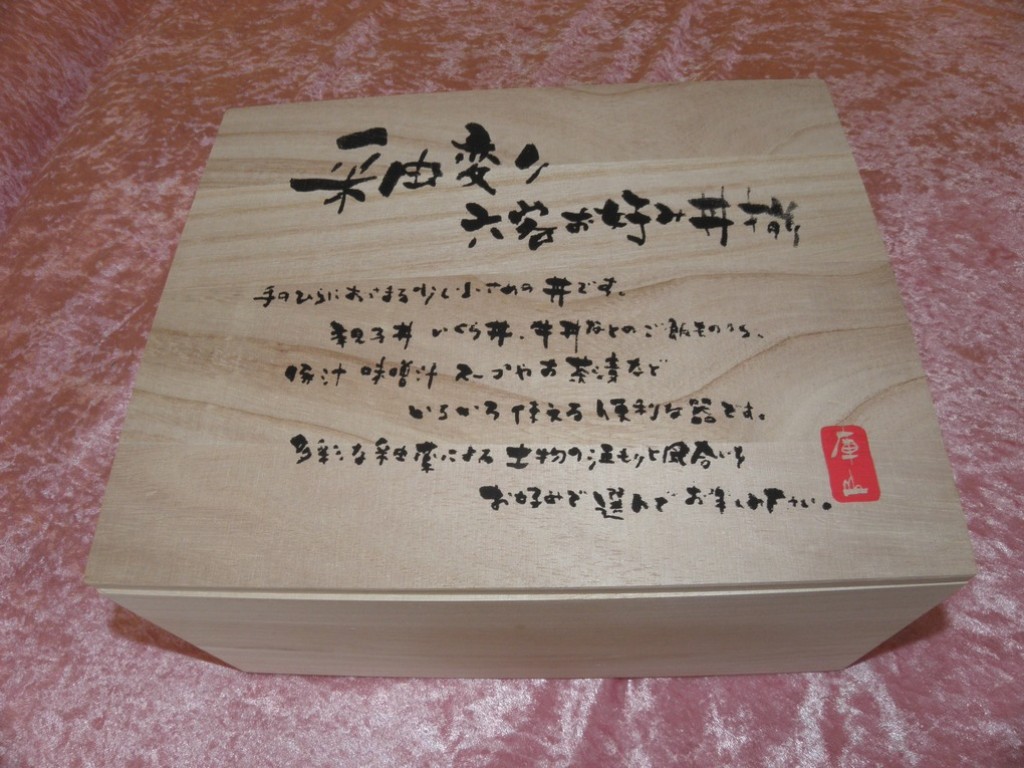 釉変り
六客お好み丼揃
手のひらにおさまる少し小さめの丼です。
親子丼 いくら丼、牛丼などのご飯ものから、
豚汁 味噌汁 スープやお茶漬など
いろいろ使える便利な器です。
多彩な釉薬による土物の温もりと風合いを
お好みで選んでお楽しみ下さい。
山